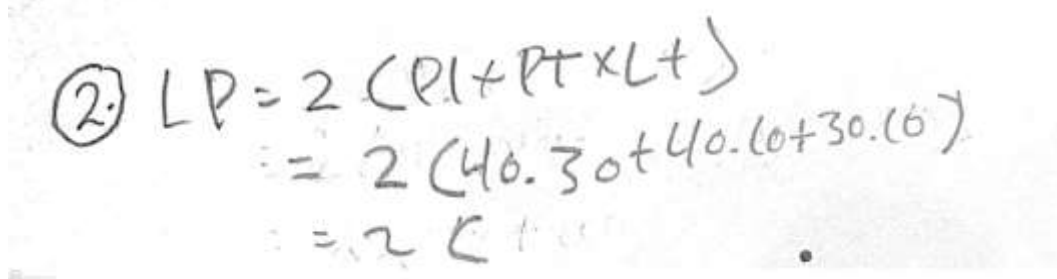 ② LP = 2 (Pl + PT × Lt)
= 2 (40.30 + 40.10 + 30.10)
= 2 (